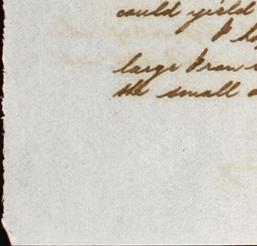 could yield
I
large
the small